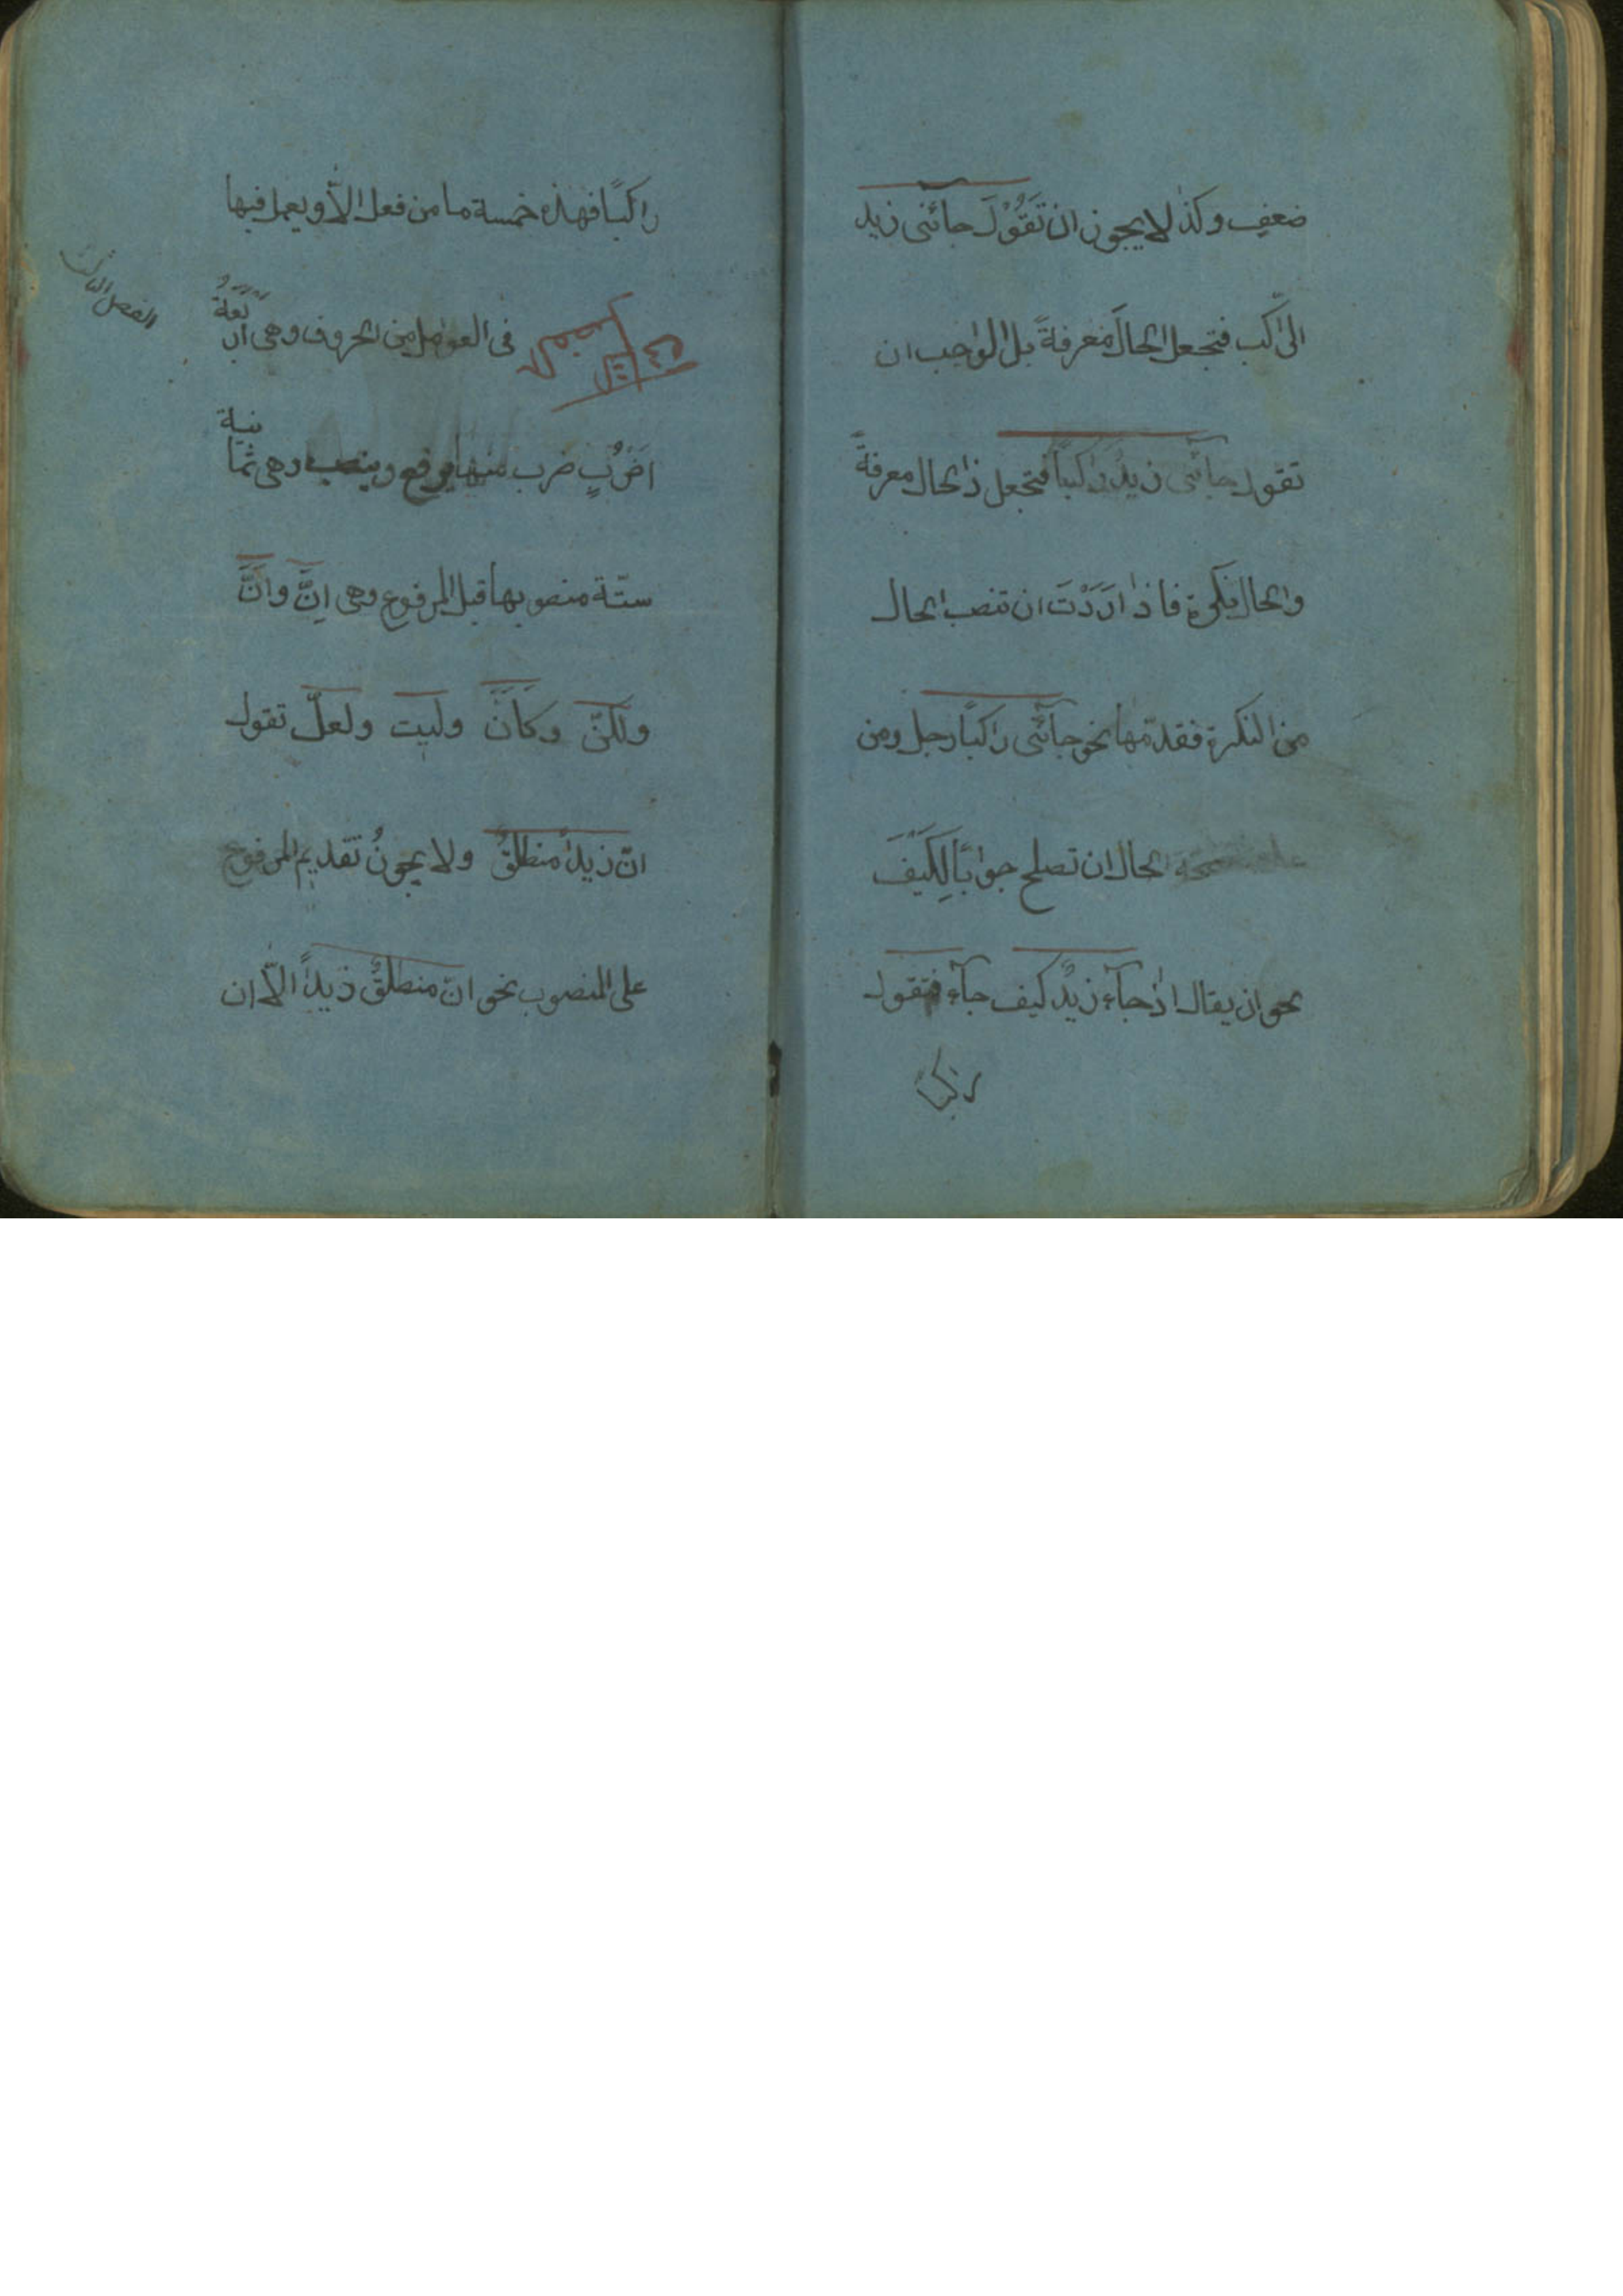 ضعف وكذا لا يجوز ان تَقُوْلَ جائنى زيد
الراكب فتجعل الحالَ معرفةً بل الواجب ان
تقول جائنى زيدٌ راكباً فتجعل ذا الحال معرفةً
والحال نكرة فاذا ارَدْتَ ان تنصب الحال
من النكرة فقدّمها نحو جآئنى راكباً رجل ومن
الحال ان تصلح جواباً لِكَيْفَ
نحو ان يقال اذا جآء زيدٌ كيف جآء فتقول
راكبا
راكبًا فهذه خمسة ما من فعل الاّ ويعمل فيها
الفصل الثالث
الفصل الثالث فى العوامل من الحروف وهى اربَعَةُ
اضَرُبٍ ضرب منها يرفع وينصب وهى ثمانية
ستّة منصوبها قبل المرفوع وهى اِنَّ وَاَنَّ
ولكنّ وكَاَنَّ وليت ولعلّ تقول
انّ زيداً منطلقٌ ولا يجوزُ تقديم المرفوع
على المنصوب نحو انّ منطلقٌ زيداً الاّ ان